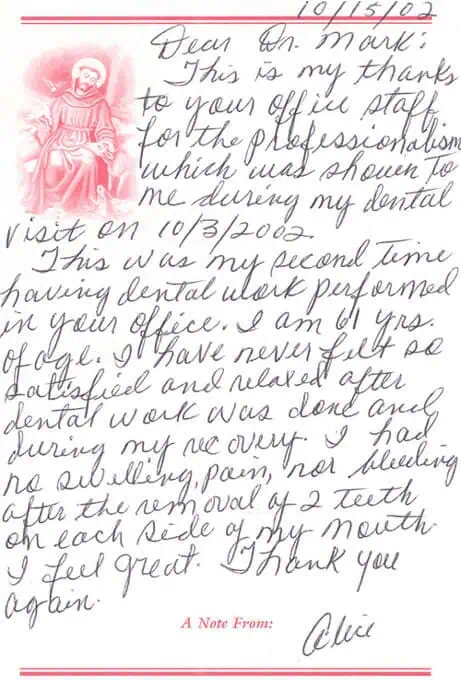 10/15/02
Dear Dr. Mark:
This is my thanks
to your office staff
for the professionalism
which was shown to
me during my dental
visit on 10/3/2002.
This was my second time
having dental work performed
in your office. I am 61 yrs.
of age. I have never felt so
satisfied and relaxed after
dental work was done and
during my recovery. I had
no swelling, pain, nor bleeding
after the removal of 2 teeth
on each side of my mouth.
I feel great. Thank you
again.
A Note From:
Alice